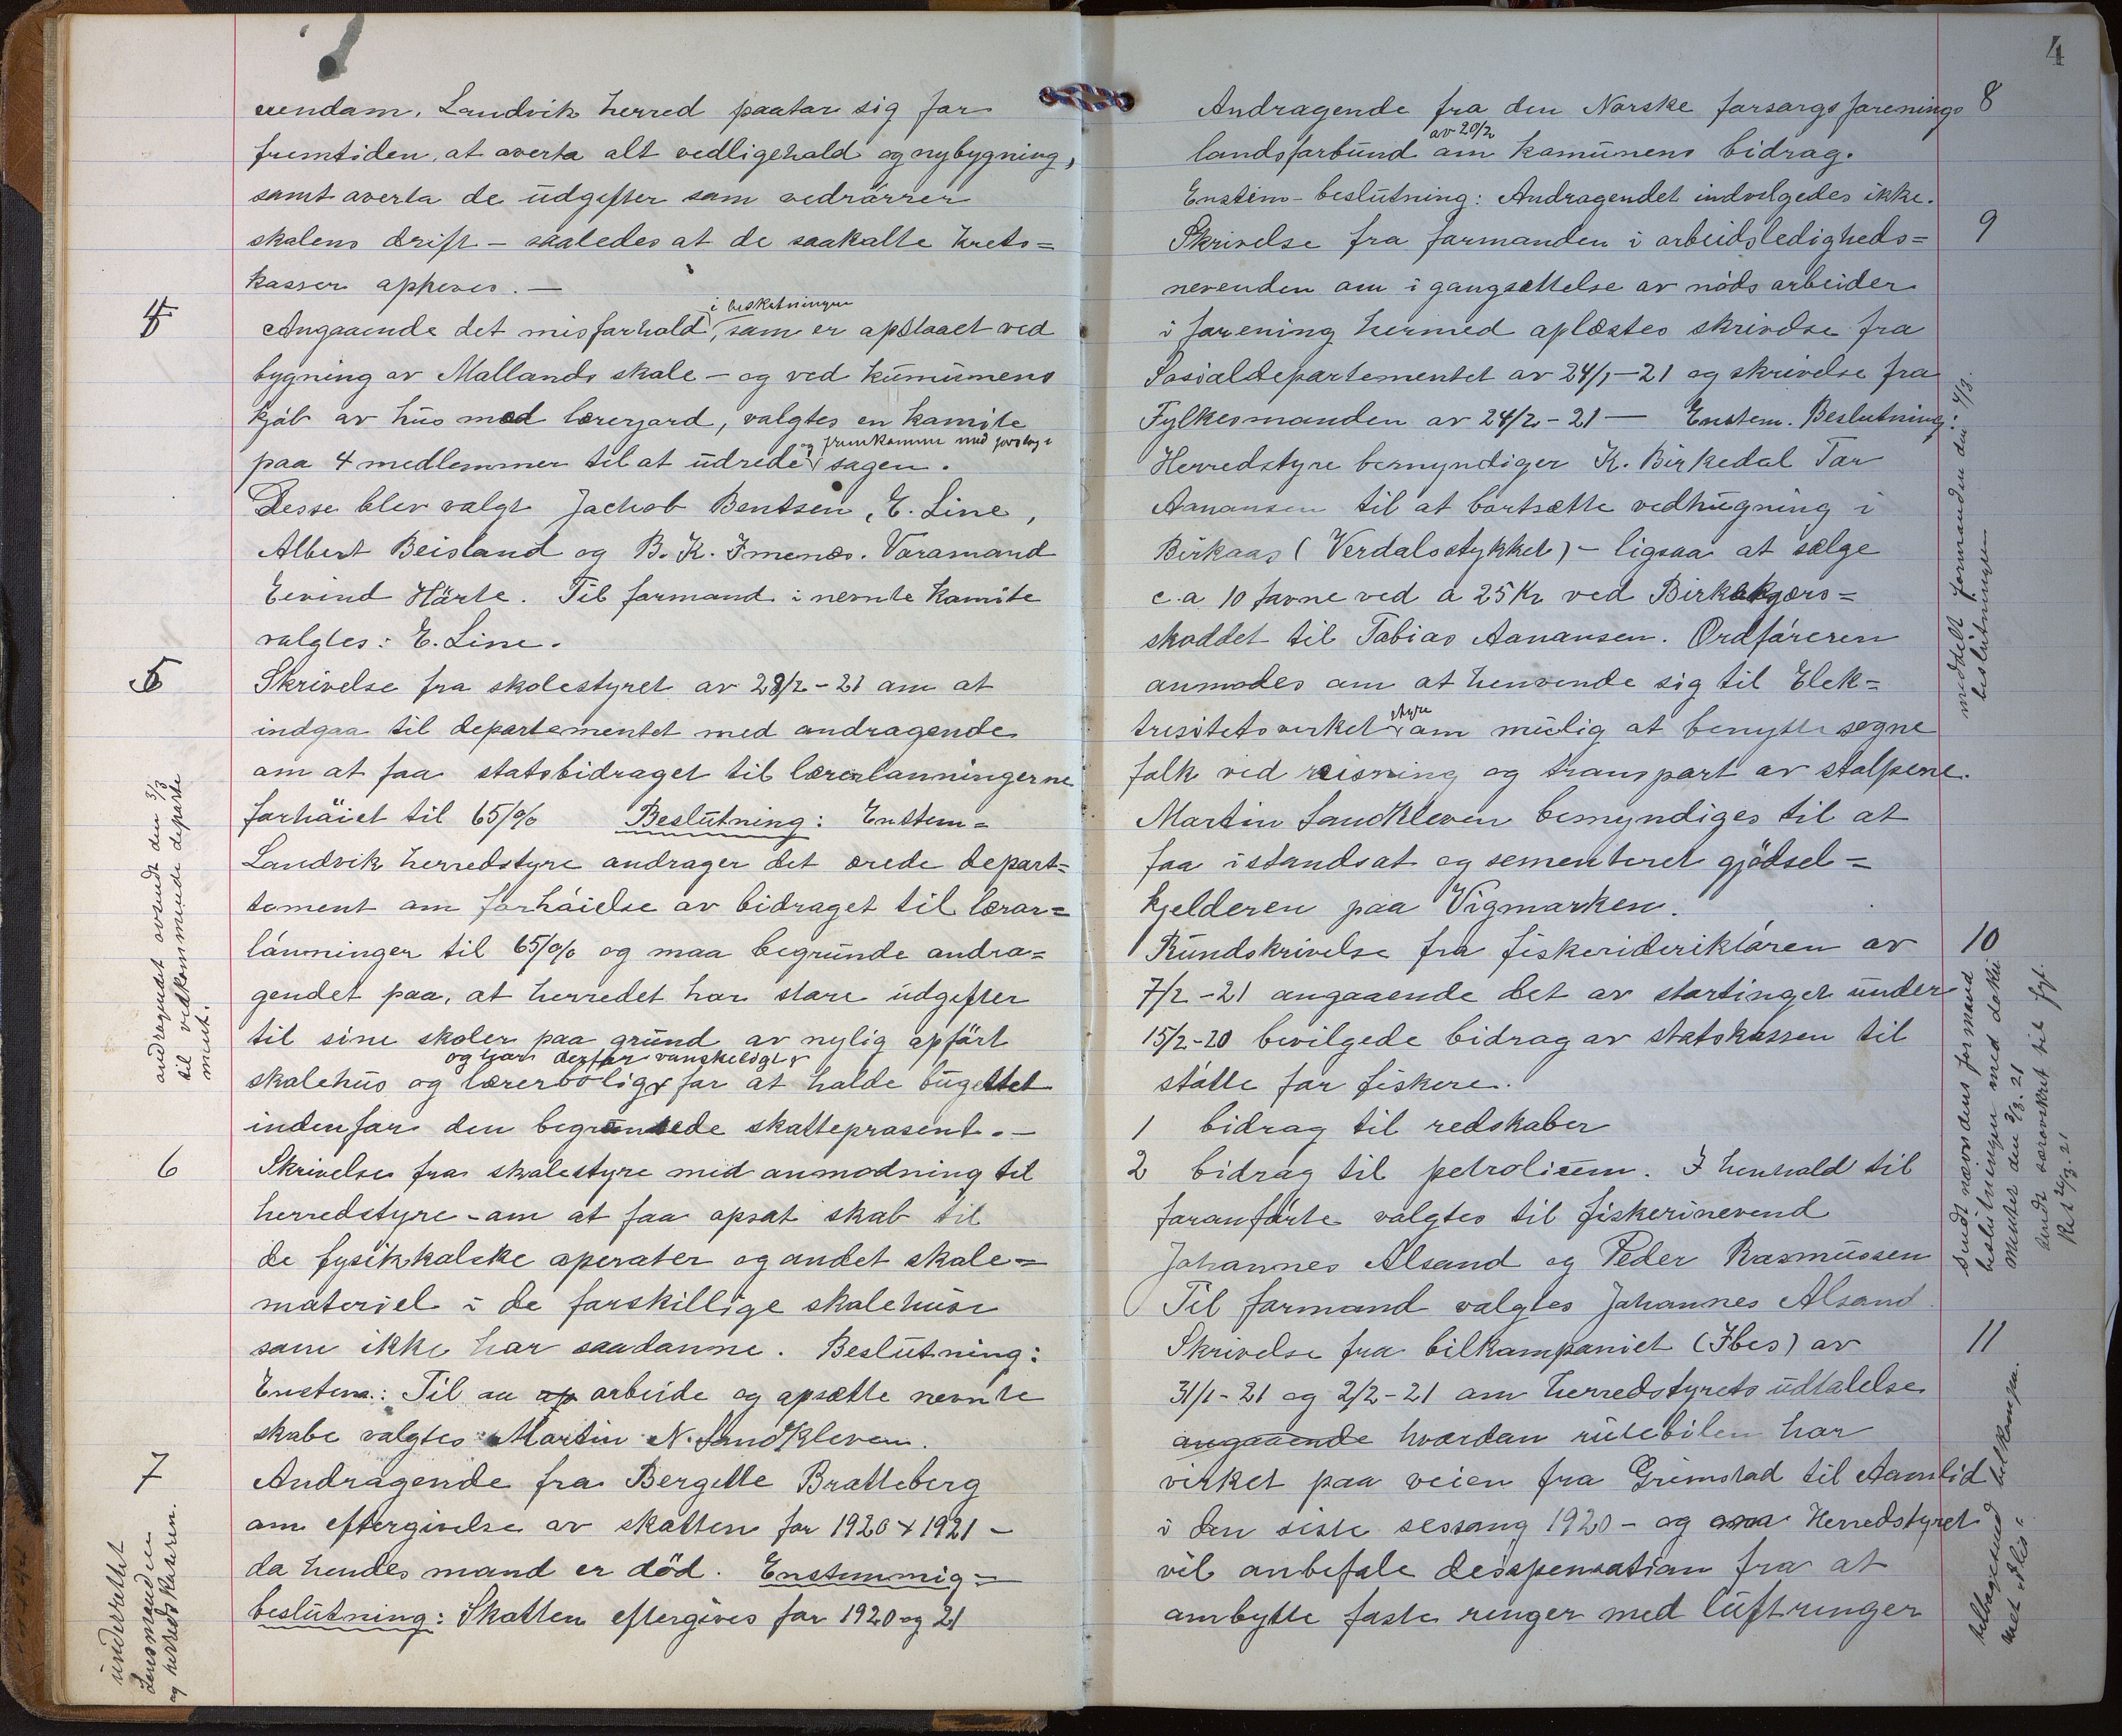 eiendam. Landvik herred paatar sig for
fremtiden, at averta alt vedligehald og nybygning,
samt averta de udgifter sam vedrörrer
skalens drift - saaledes at de saakalte krets=
kasser appheves. —
4
Angaaende det misfarhald, i beskatningen sam er apstaaet ved
bygning av Mallands skale - og ved kumunens
kjöb av hus med lærerjord, valgtes en kamite
paa 4 medlemmer til at udrede og fremkamme med forslag i sagen.
Desse blev valgt Jachob Bentsen, E. Line,
Albert Beisland og B. K. Imenæs. Varamand
Eivind Hårte. Til farmand i nevnte kamite
valgtes: E. Line.
5
Skrivelse fra skolestyret av 28/2-21 am at
indgaa til departementet med andragende
am at faa statsbidraget til lærerlanningerne
forhöiet til 65% Beslutning: Enstem=
Landvik herredstyre andrager det ærede depart=
tement am forhöielse av bidraget til lærar=
lönninger til 65% og maa begrunde andra=
gendet paa, at herredet har stare udgifter
til sine skoler paa grund av nylig apfört
skalehus og lærerbolig og har derfor vanskeligt for at halde bugettet
indenfar den begrensede skatteprasent. -
6
Skrivelse fra skalestyre med anmodning til
herredstyre - am at faa apsat skab til
de fysikkalske aperater og andet skale=
materiel i de farskillige skalehuse
sam ikke har saadanne. Beslutning:
Enstem.: Til aa ap arbeide og apsætte nevnte
skabe valgtes Martin N. Sandkleven.
7
Andragende fra Bergette Bratteberg
am eftergivelse av skatten far 1920 & 1921 -
da hendes mand er död. Enstemmig=
beslutning: Skatten eftergives far 1920 og 21
andragendet avsendt den 3/3
til vedkommende departe
ment.
underrettet
Lensmanden
og herredskasseren.
4
8
Andragende fra den Norske forsørgs forenings
landsforbund av 20/2 am kamunens bidrag.
Enstem- beslutning: Andragendet indvilgedes ikke.
9
Skrivelse fra farmanden i arbeidsledigheds=
nevenden am i gangsættelse av nöds arbeider
i farening hermed aplæstes skrivelse fra
Sosialdepartementet av 24/1-21 og skrivelse fra
Fylkesmanden av 24/2-21 — Enstem. Beslutning:
Herredstyre bemyndiger K. Birkedal Tor
Aanansen til at bortsætte vedhugning i
Birkaas (Verdalsstykket) - ligsaa at sælge
c.a. 10 favne ved a 25 Kr ved Birkekjærs=
skoddet til Tobias Aanansen. Ordföreren
anmodes am at henvende sig til Elek=
trisitetsverket styre am mulig at benytte sogne
folk ved reisning og transport av stolpene.
Martin Sandkleven bemyndiges til at
faa istandsat og sementeret gjödsel=
kjelderen paa Vigmarken.
10
Rundskrivelse fra fiskerideriktören av
7/2-21 angaaende det av startinget under
15/2-20 bevilgede bidrag av statskassen til
stötte far fiskere.
1 bidrag til redskaber
2 bidrag til petrolieum. I henhald til
faranförte valgtes til fiskerinevend
Johannes Alsand og Peder Rasmussen
Til farmand valgtes Johannes Alsand.
11
Skrivelse fra bilkampaniet (Ibes) av
31/1-21 og 2/2-21 am herredstyrets udtalelse
angaaende hvardan rutebilen har
virket paa veien fra Grimstad til Aamlid
i den siste sessang 1920 - og ama Herredstyret
vil anbefale desspensatian fra at
ambytte faste ringer med luftringer
meddelt formanden den 4/3.
beslutningen
Sendt nævndens formand
beslutningen med doku
menter den 3/3. 21
sendt særskilt til fyl.
Ret 26/3. 21
tilbagesend bilkompan.